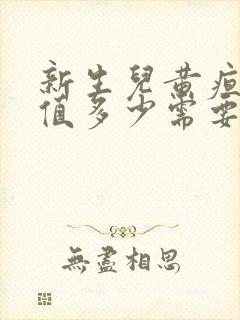 新生兒黃疸
值多少需要
無盡相思